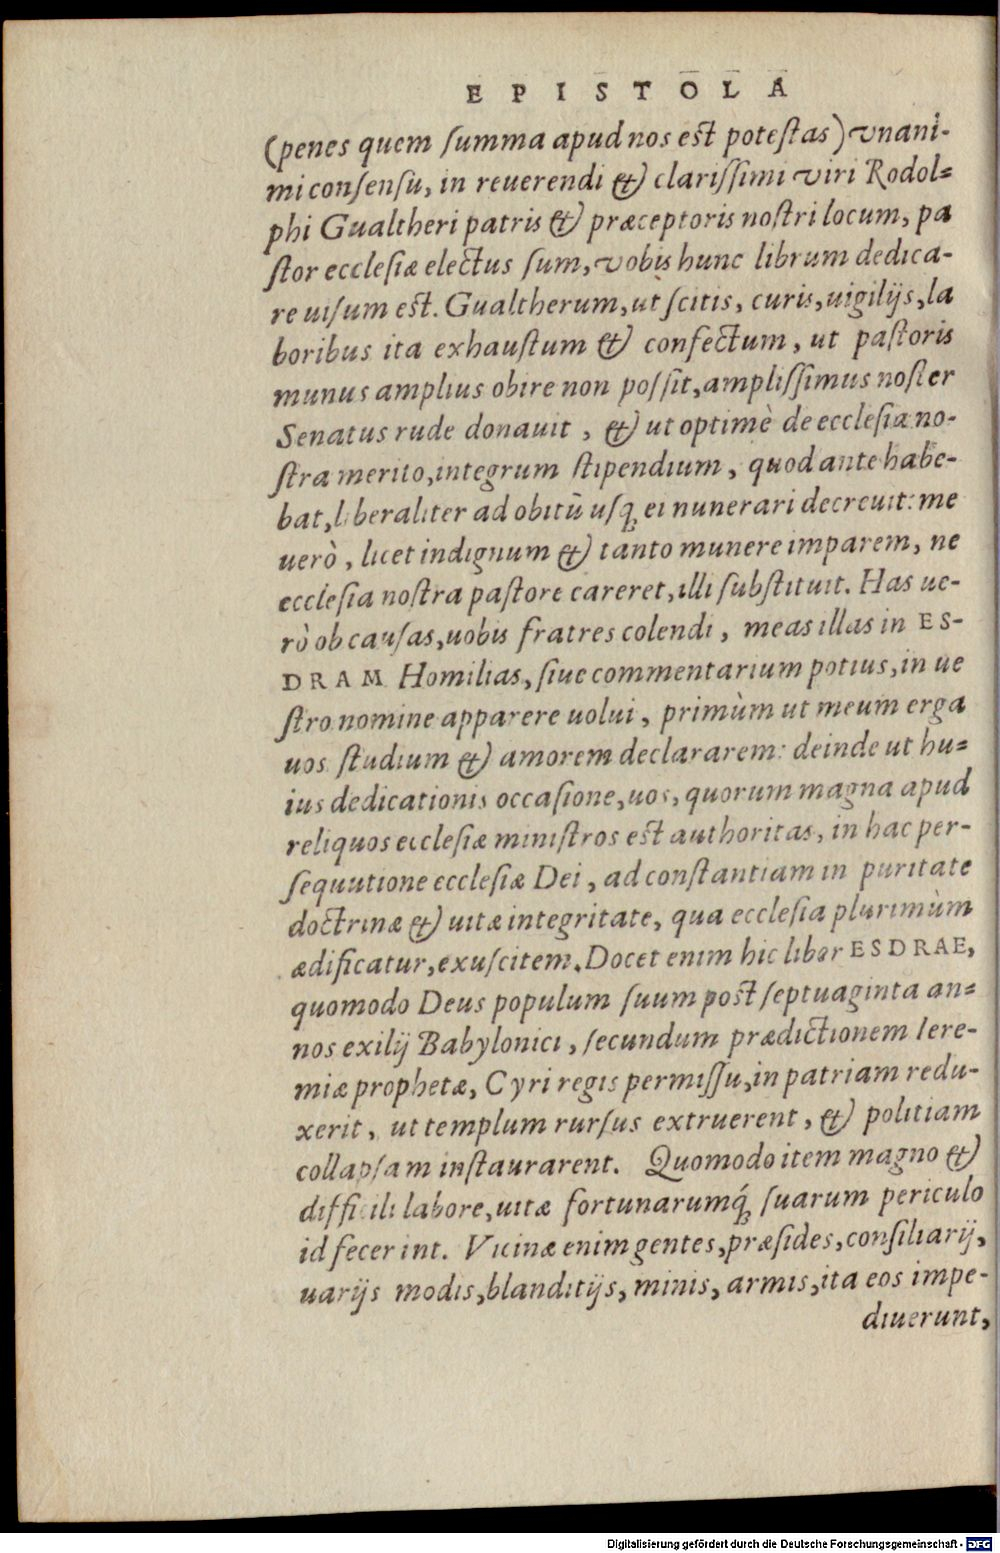 EPISTOLA
(penes quem ſumma apud nos est poteſtas) vnani-
mi conſenſu, in reuerendi & clariſſimi viri Rodol=
phi Gualtheri patris & præceptoris noſtri locum, pa
ſtor eccleſiæ electus ſum, vobis hunc librum dedica-
re uiſum est. Gualtherum, ut ſcitis, curis, uigilijs, la
boribus ita exhauſtum & confectum, ut paſtoris
munus amplius obire non poſſit, ampliſſimus noſter
Senatus rude donauit, & ut optimè de eccleſia no-
ſtra merito, integrum ſtipendium, quod ante habe-
bat, liberaliter ad obitū uſq; ei nunerari decreuit: me
uerò, licet indignum & tanto munere imparem, ne
eccleſia noſtra paſtore careret, illi ſubſtituit. Has ue-
rò ob cauſas, uobis fratres colendi, meas illas in ES-
DRAM Homilias, ſiue commentarium potius, in ue
ſtro nomine apparere uolui, primùm ut meum erga
uos ſtudium & amorem declararem: deinde ut hu=
ius dedicationis occaſione, uos, quorum magna apud
reliquos eccleſiæ miniſtros est authoritas, in hac per-
ſequutione eccleſiæ Dei, ad conſtantiam in puritate
doctrinæ & uitæ integritate, qua eccleſia plurimùm
ædificatur, exuſcitem. Docet enim hic liber ESDRAE,
quomodo Deus populum ſuum post ſeptuaginta an=
nos exilij Babylonici, ſecundum prædictionem Iere-
miæ prophetæ, Cyri regis permiſſu, in patriam redu-
xerit, ut templum rurſus extruerent, & politiam
collapſam inſtaurarent. Quomodo item magno &
difficili labore, uitæ fortunarumq́; ſuarum periculo
id fecerint. Vicinæ enim gentes, præſides, conſiliarij,
uarijs modis, blanditijs, minis, armis, ita eos impe-
diuerunt,
Digitalisierung gefördert durch die Deutsche Forschungsgemeinschaft - DFG